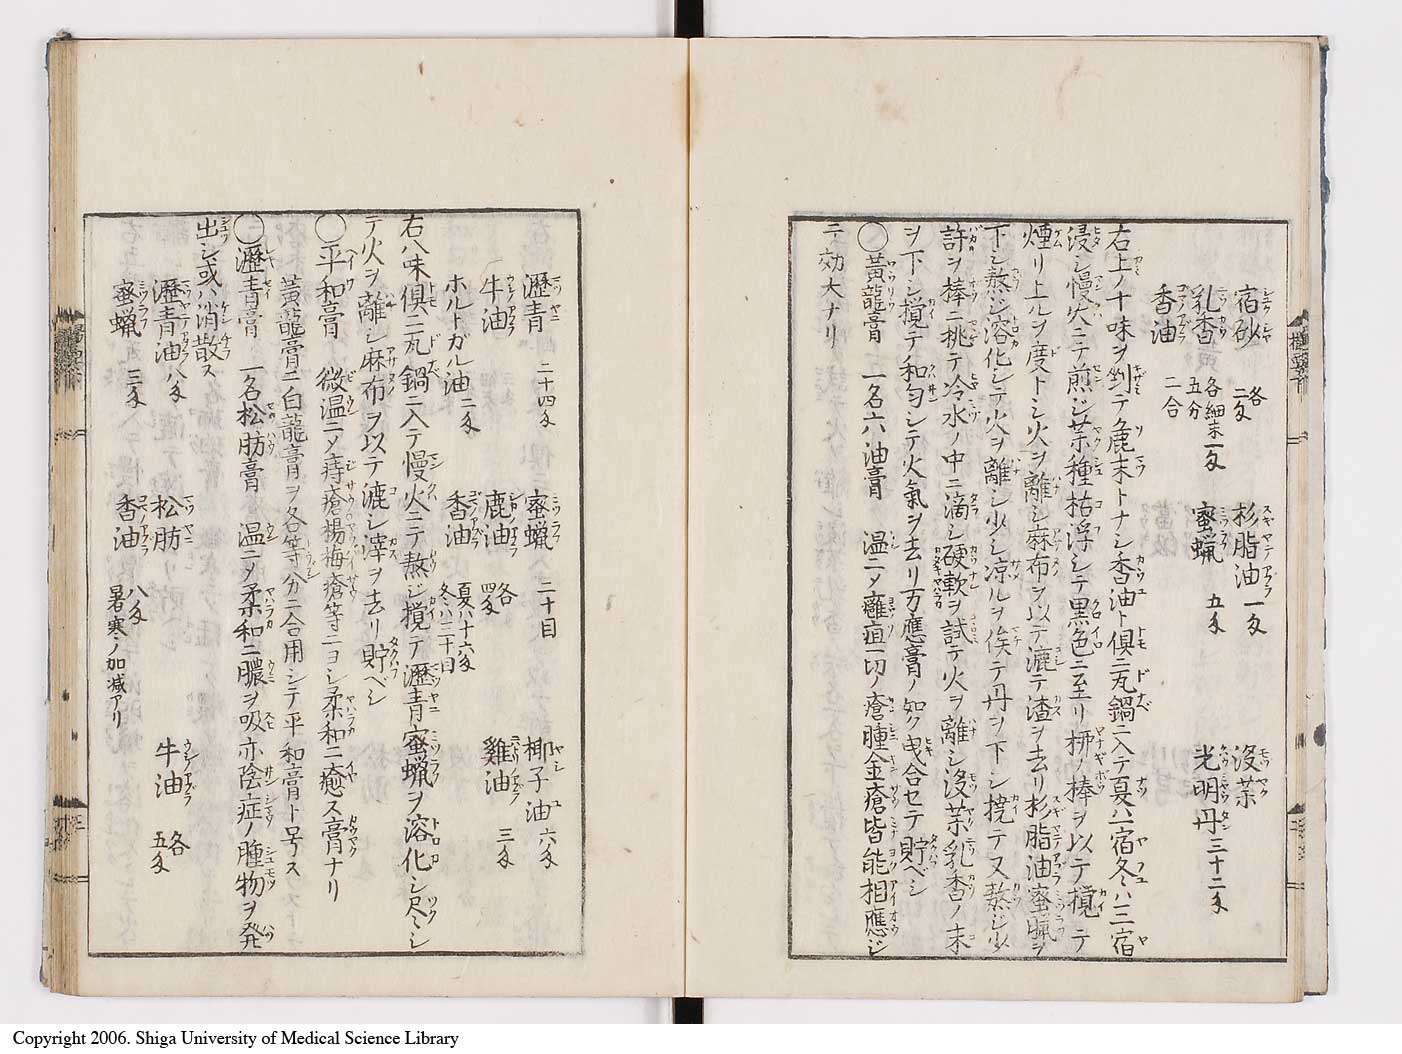 宿砂 各二匁 杉脂油 一匁 没薬
乳香 各細末一匁五分 蜜蝋 五匁 光明丹 三十二匁
香油 二合
右上ノ十味ヲ剉テ麁末トナシ香油ト倶ニ丸鍋ニ入テ夏ハ一宿冬ハ三宿
浸シ慢火ニテ煎ジ薬種枯浮シテ黒色ニ至リ柳ノ棒ヲ以テ攪テ
煙リ上ルヲ度トシ火ヲ離シ麻布ヲ以テ漉テ渣ヲ去リ杉脂油蜜蝋ヲ
下シ熬ジ溶化シテ火ヲ離シ少シ凉ルヲ俟テ丹ヲ下シ攪テ又熬ジ少
許ヲ棒ニ挑テ冷水ノ中ニ滴シ硬軟ヲ試テ火ヲ離シ没薬乳香ノ末
ヲ下シ攪テ和匀シテ火氣ヲ去リ万應膏ノ如ク曳合セテ貯ベシ
◯黄龍膏 一名六油膏 温ニメ癰疽一切ノ瘡腫金瘡皆能相應ジ
テ効大ナリ
瀝青 二十四匁 蜜蝋 二十目 椰子油 六匁
牛油 鹿油 各四匁 雞油 三匁
ホルトガル油 二匁 香油 夏ハ十六匁冬ハ二十目
右八味倶ニ丸鍋ニ入テ慢火ニテ熬ジ攪テ瀝青蜜蝋ヲ溶化シ尽シ
テ火ヲ離シ麻布ヲ以テ漉シ滓ヲ去リ貯ベシ
◯平和膏 微温ニメ痔瘡楊梅瘡等ニヨシ柔和ニ癒ス膏ナリ
黄龍膏ニ白龍膏ヲ各等分ニ合用シテ平和膏ト号ス
◯瀝青膏 一名松肪膏 温ニメ柔和ニ膿ヲ吸亦陰症ノ腫物ヲ発
出シ或ハ消散ス
瀝青油 八匁 松肪 牛油 各五匁
蜜蝋 三匁 香油 八匁 暑寒ノ加減アリ
Copyright 2006. Shiga University of Medical Science Library